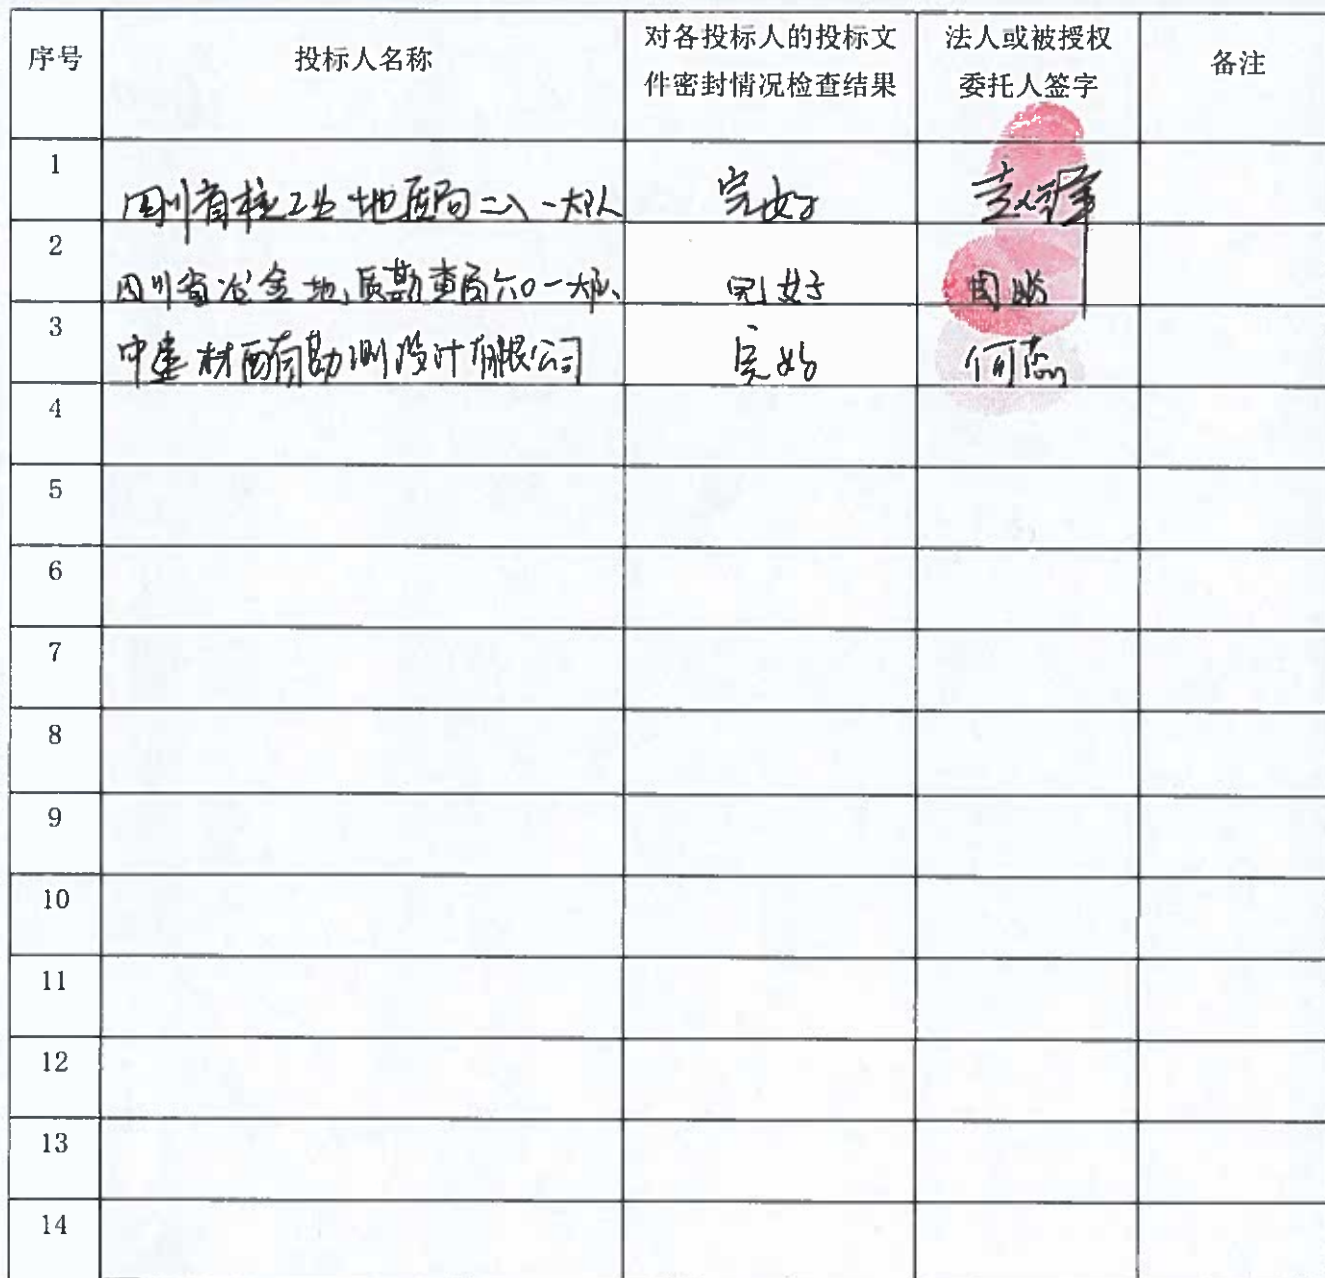 序号 投标人名称 对各投标人的投标文 法人或被授权 备注
件密封情况检查结果 委托人签字
1 四川省核工业地质局二八一大队 完好
2 四川省冶金地质勘查局六0一大队 完好 周鹏
3 中建材西南勘测设计有限公司 完好 何磊
4
5
6
7
8
9
10
11
12
13
14